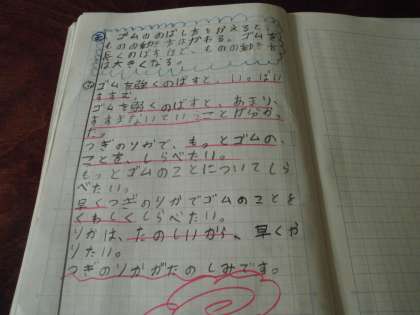 ま ゴムののばし方を変えると、
ものの動き方はかわる。ゴムを
長くのばすほど、ものの動き方
は大きくなる。
ゴムを強くのばすと、いっぱい
すすむ。
ゴムを弱くのばすと、あまり、
すすまないということが分かっ
た。
つぎのりかで、もっとゴムの
ことを、しらべたい。
もっとゴムのことについてしら
べたい。
早くつぎのりかでゴムのことを
くわしくしらべたい。
りかは、たのしいから、早くや
りたい。
つぎのりかがたのしみです。